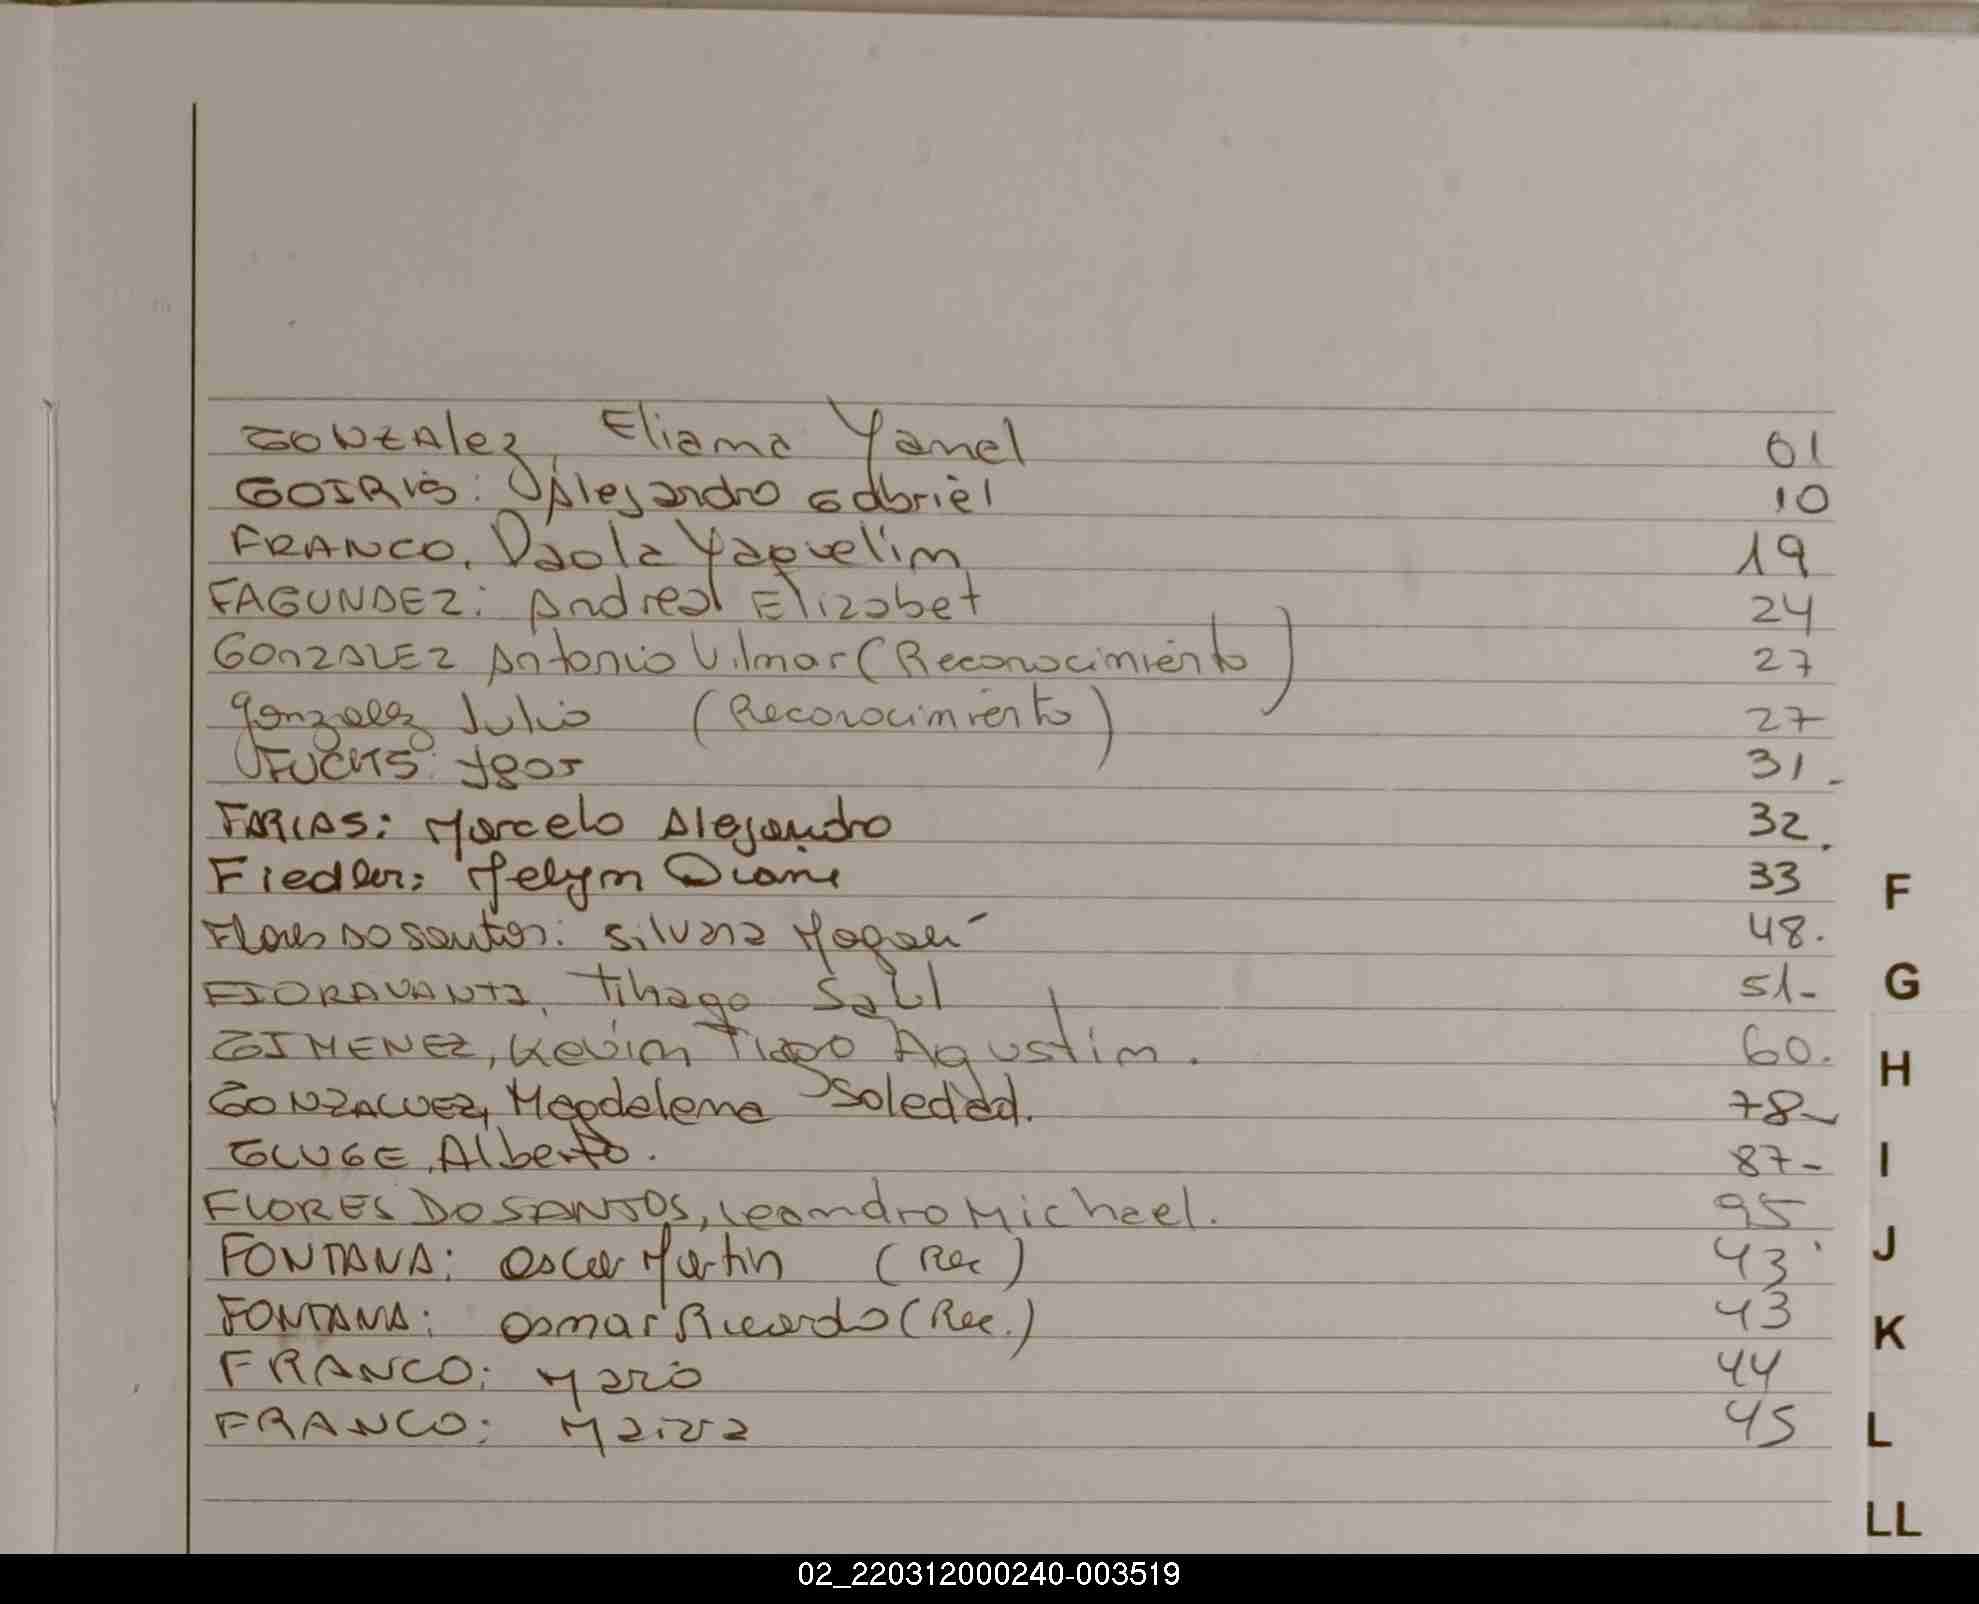 GONZAlez, Eliana Yanel 01
GOIRIS: Alejandro Gabriel 10
FRANCO, Daola Yaquelin 19
FAGUNDEZ: Andrea Elizabet 24
GONZALEZ Antonio Vilmar (Reconocimiento) 27
gonzalez Julio (Reconocimiento) 27
FUCHS: Ygor 31-
FARIAS: Marcelo Alejandro 32.
Fiedler: Diane 33
Flores DO Santos: Silvana Magalí 48.
FIORAVANTI, Tihago Saul 51-
GIMENEZ, Kevin Tiago Agustin. 60.
GONZALVEZ, Magdalena Soledad. 78-
GLUGE, Alberto. 87-
FLORES DO SANTOS, Leandro Michael. 95
FONTANA: Oscar Martin (Rec) 43
FONTANA: Osmar Ricardo (Rec.) 43
FRANCO: 44
FRANCO: Maira 45
F
G
H
I
J
K
L
LL
02_220312000240-003519